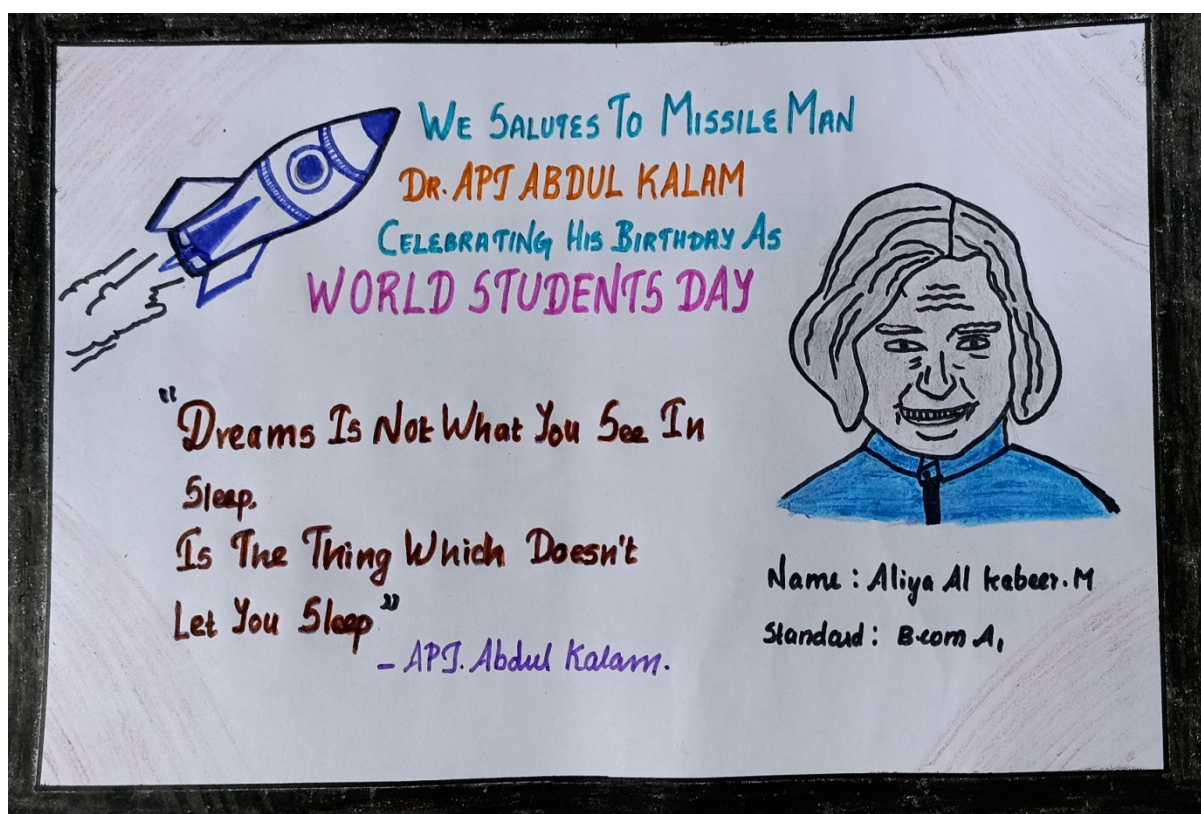 WE SALUTES TO MISSILE MAN
DR. APJ ABDUL KALAM
CELEBRATING HIS BIRTHDAY AS
WORLD STUDENTS DAY
"Dreams Is Not What You See In
Sleep.
Is The Thing Which Doesn't
Let You Sleep"
- APJ. Abdul Kalam.
Name : Aliya Al kabeer. M
Standard : B.com A1